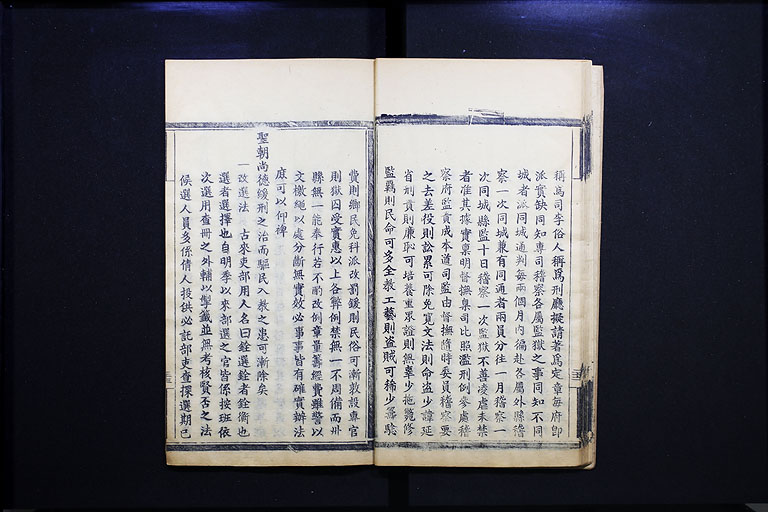 稱爲司李俗人稱爲刑廳擬請著爲定章每府卽
派實缺同知專司稽察各屬監獄之事同知不同
城者派同城通判每兩個月內徧赴各屬外縣稽
察一次同城兼有同通者兩員分往一月稽察一
次同城縣監十日稽察一次監獄不善凌虐未禁
者准其據實稟明督撫臬司比照濫刑例參處稽
察府監責成本道司監由督撫隨時委員稽察要
之去差役則訟累可除免寬文法則命盜少諱延
省刑責則廉恥可培養重眾證則無辜少拖斃修
監羈則民命可多全教工藝則盜賊可稀少籌驗
費則鄉民免科派改罰鍰則民俗可漸敦設專官
則獄囚受實惠以上各弊例禁無一不周備而州
縣無一能奉行若不酌改例章量籌經費雖警以
文檄繩以處分斷無實效必事事皆有確實辦法
庶可以仰裨
聖朝尚德緩刑之治而驅民入教之患可漸除矣
一改選法 古來吏部用人名曰銓選銓者銓衡也
選者選擇也自明季以來部選之官皆係按班依
次選用查冊之外輔以掣籤並無考核賢否之法
候選人員多係倩人投供必託部吏查探選期已